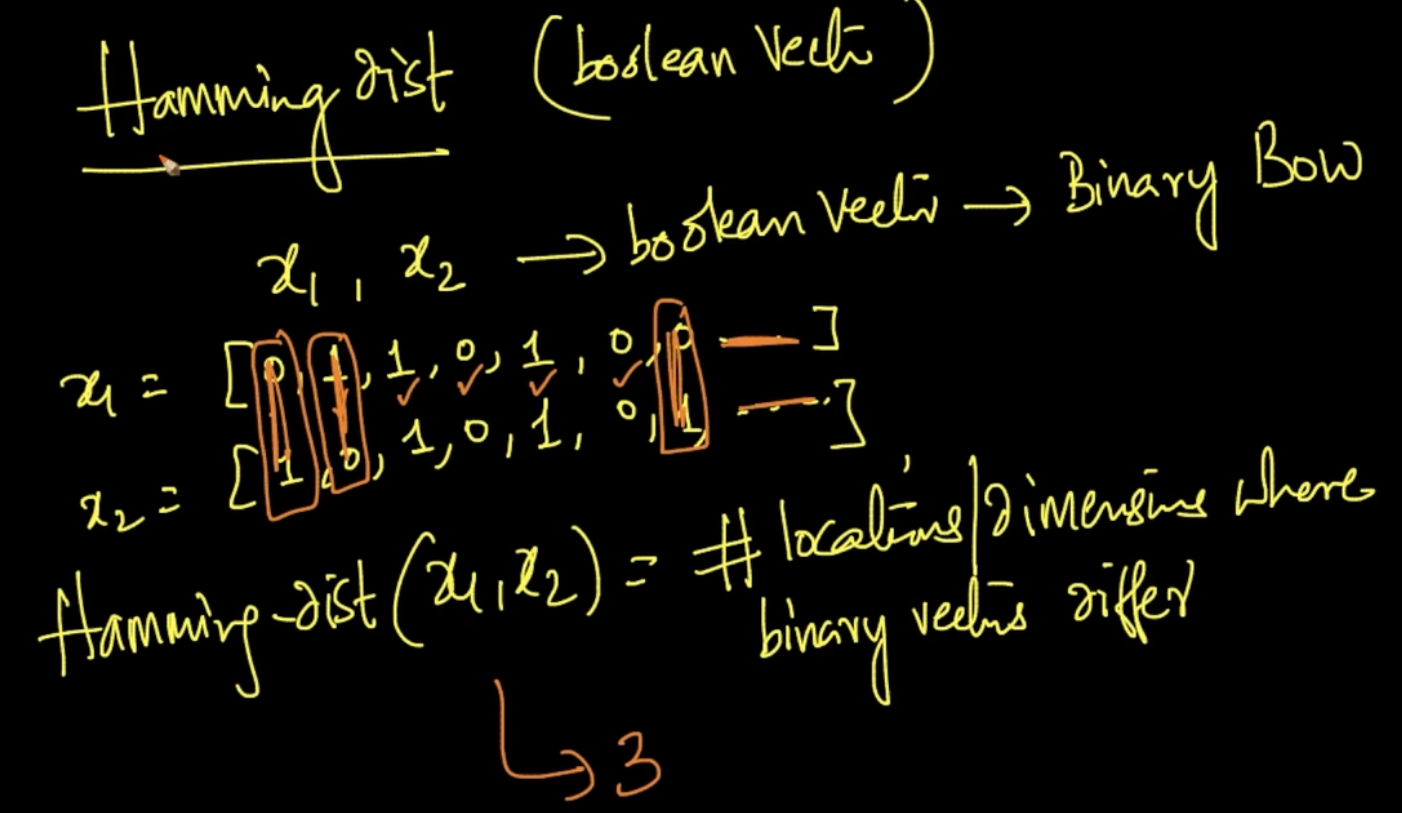 Hamming dist (boolean Vector)
x₁, x₂ → boolean Vector → Binary BoW
x₁ = [0, 1, 1, 0, 1, 0, 0, — ]
x₂ = [1, 0, 1, 0, 1, 0, 1, — ]
Hamming-dist (x₁, x₂) = # locations/dimensions where
binary vectors differ
↳ 3